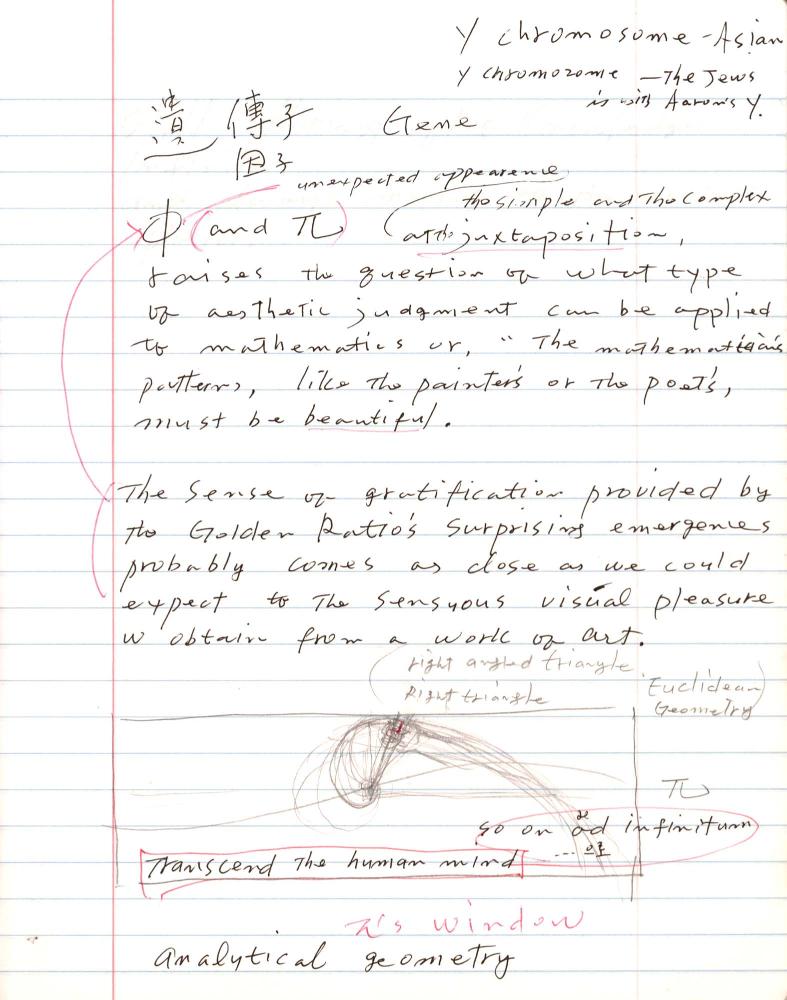 Y chromosome - Asian
Y chromozome — The Jews
is with Aaron's Y.
遺傳子 Gene
因子
unexpected appearence
the simple and the complex
Φ (and π) at the juxtaposition,
raises the question of what type
of aesthetic judgment can be applied
to mathematics or, "The mathematician's
patterns, like the painter's or the poet's,
must be beautiful.
The sense of gratification provided by
the Golden Ratio's surprising emergences
probably comes as close as we could
expect to the sensuous visual pleasure
w obtain from a work of art.
right angled triangle
Right triangle
Euclidean
Geometry
π
so on ad infinitum
Transcend the human mind
π's window
analytical geometry